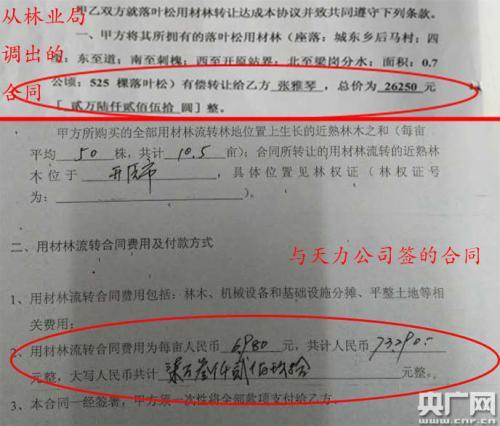 从林业局
调出的
合同
甲乙双方就落叶松用材林转让达成本协议并致共同遵守下列条款。
一、甲方将其所拥有的落叶松用材林（座落：城东乡后马村；四
旁：东至道；南至刺槐；西至开原站界；北至梁岗分水；面积：0.7
公顷；525 棵落叶松）有偿转让给乙方 张雅琴，总价为 26250 元
［贰万陆仟贰佰伍拾 圆］整。
甲方所购买的全部用材林流转林地位置上生长的近熟林木之和（每亩
平均 50 株，共计 10.5 亩）；合同所转让的用材林流转的近熟林
木位于 开原市，具体位置见林权证（林权证号
为：）。
二、用材林流转合同费用及付款方式
与天力公司签的合同
1、用材林流转合同费用包括：林木、机械设备和基础设施分摊、平整土地等相
关费用；
2、用材林流转合同费用为每亩人民币 6980 元，共计人民币 73290.-
元整，大写人民币共计 柒万叁仟贰佰玖拾 元整。
3、本合同一经签署，甲方须一次性将全部款项支付给乙方。
央广网
www.cnr.cn